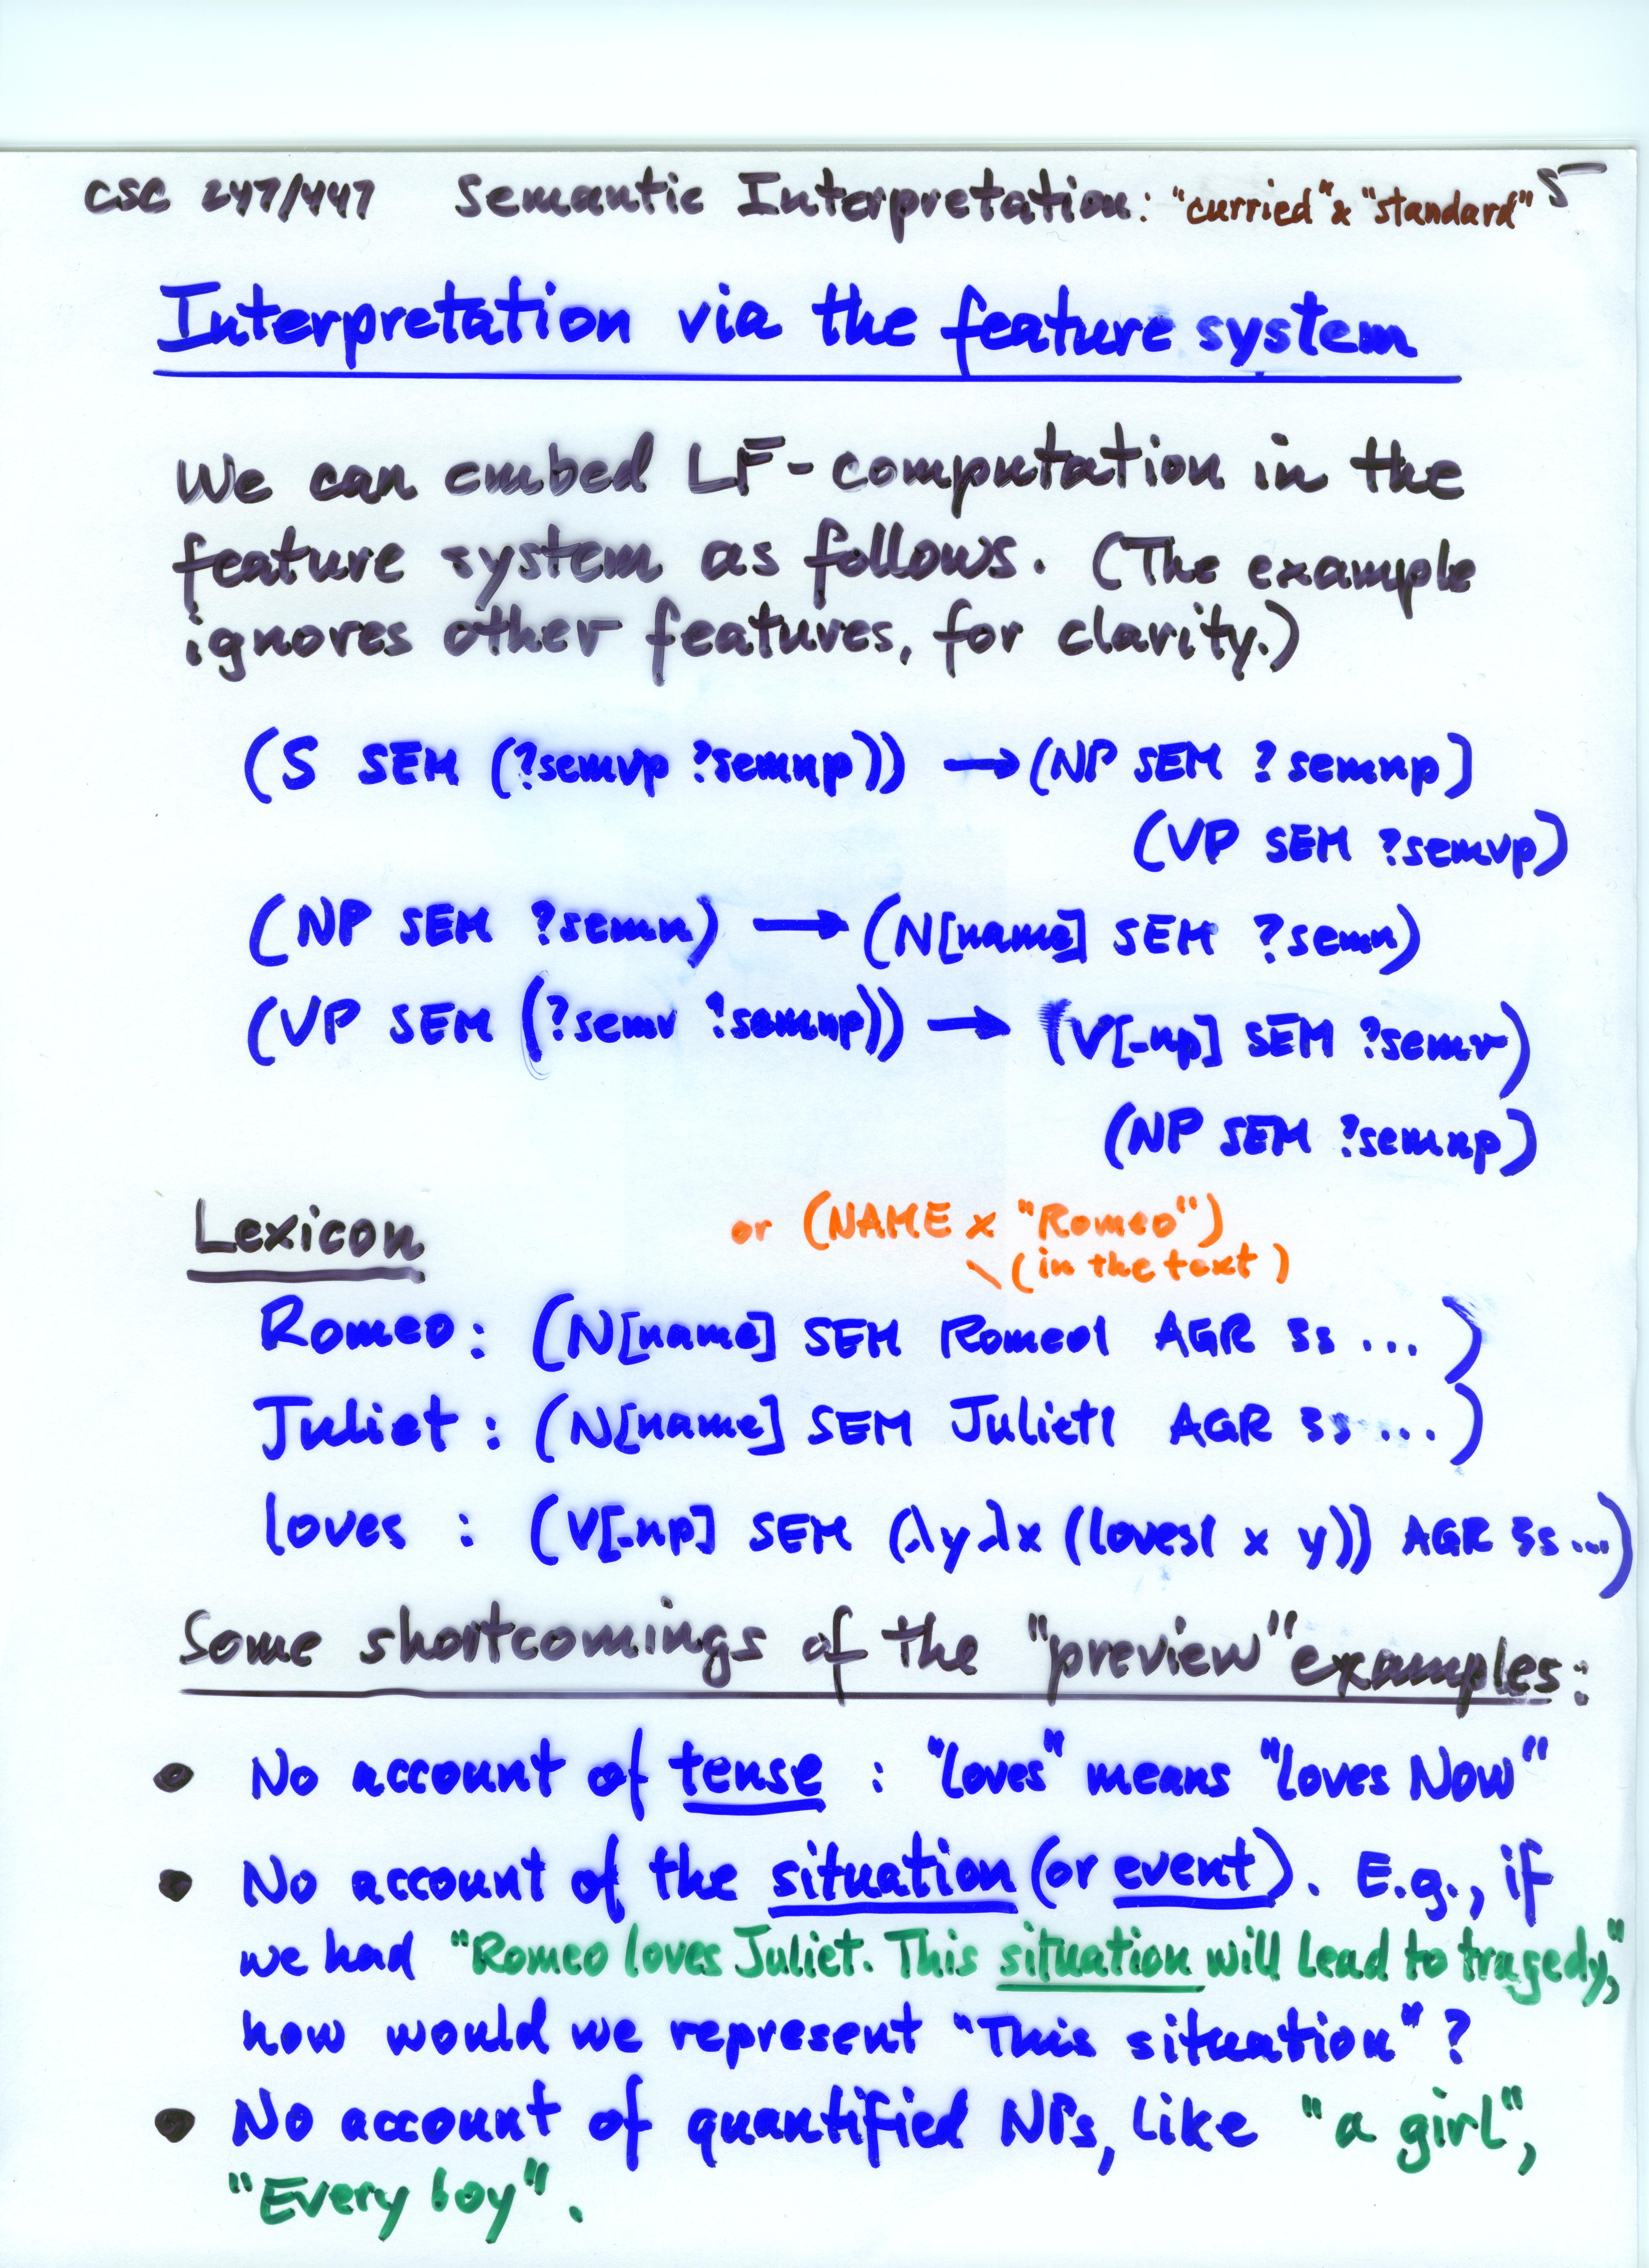 CSC 247/447 Semantic Interpretation: "curried" & "standard" 5
Interpretation via the feature system
We can embed LF-computation in the
feature system as follows. (The example
ignores other features, for clarity.)
(S SEM (?semvp ?semnp)) → (NP SEM ?semnp)
(VP SEM ?semvp)
(NP SEM ?semn) → (N[name] SEM ?semn)
(VP SEM (?semv ?semnp)) → (V[_np] SEM ?semv)
(NP SEM ?semnp)
Lexicon
or (NAME x "Romeo")
(in the text)
Romeo: (N[name] SEM Romeo1 AGR 3s ...)
Juliet: (N[name] SEM Juliet1 AGR 3s ...)
loves : (V[_np] SEM (λy λx (loves1 x y)) AGR 3s ...)
Some shortcomings of the "preview" examples:
• No account of tense : "loves" means "loves Now"
• No account of the situation (or event). E.g., if
we had "Romeo loves Juliet. This situation will lead to tragedy,"
how would we represent "This situation"?
• No account of quantified NPs, like "a girl",
"Every boy".